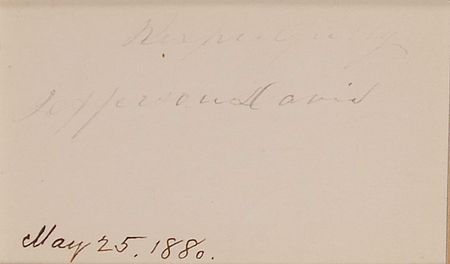 Respectfully
Jefferson Davis
May 25. 1880.